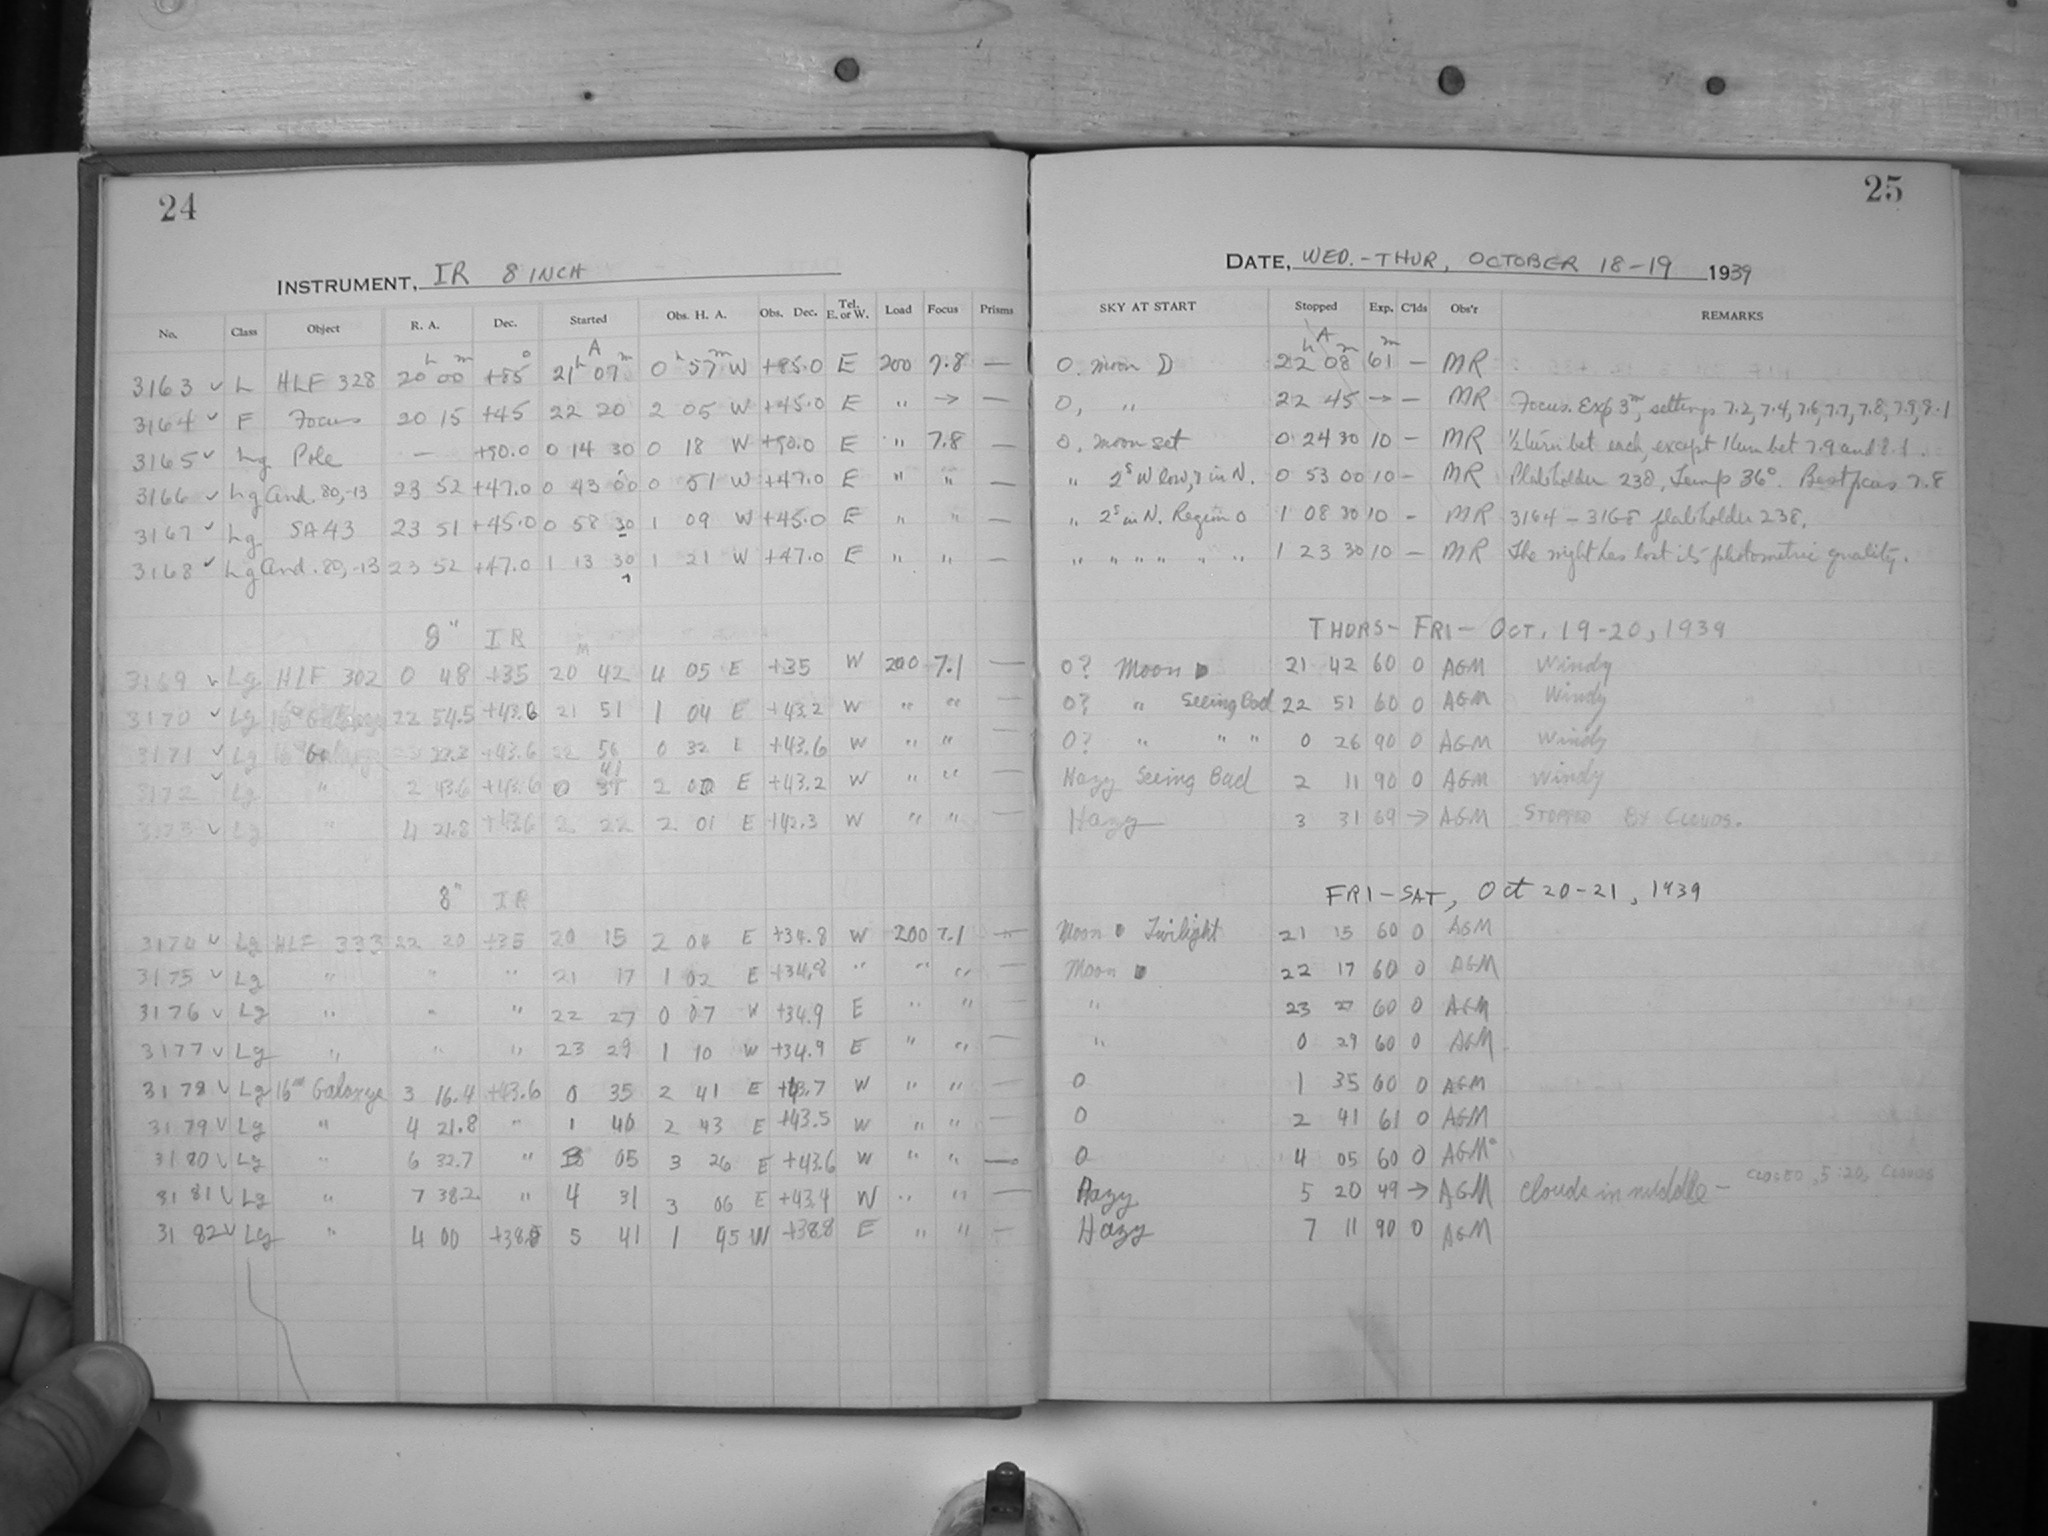 24
INSTRUMENT, IR 8 INCH
No. Class Object R. A. Dec. Started Obs. H. A. Obs. Dec. Tel. E. or W. Load Focus Prisms
3163 ✓ L HLF 328 20h 00m +85° 21h 07m A 0h 57m W +85.0 E 200 7.8 —
3164 ✓ F Focus 20 15 +45 22 20 2 05 W +45.0 E " → —
3165 ✓ Lg Pole — +90.0 0 14 30 0 18 W +90.0 E " 7.8 —
3166 ✓ Lg And. 80,-13 23 52 +47.0 0 43 00 0 51 W +47.0 E " " —
3167 ✓ Lg SA 43 23 51 +45.0 0 58 30 1 09 W +45.0 E " " —
3168 ✓ Lg And. 80,-13 23 52 +47.0 1 13 30 1 21 W +47.0 E " " —
8" IR
3169 ✓ Lg HLF 302 0 48 +35 20 42 4 05 E +35 W 200 7.1 —
3170 ✓ Lg 22 54.5 +43.6 21 51 1 04 E +43.2 W " " —
3171 ✓ Lg +43.6 22 56 0 32 E +43.6 W " " —
3172 ✓ Lg " 2 43.6 +43.6 0 41 2 00 E +43.2 W " " —
3173 ✓ Lg " 4 21.8 +43.6 2 22 2 01 E +42.3 W " " —
8" IR
3174 ✓ Lg HLF 333 22 20 +35 20 15 2 04 E +34.8 W 200 7.1 —
3175 ✓ Lg " " " 21 17 1 02 E +34.8 " " " —
3176 ✓ Lg " " " 22 27 0 07 W +34.9 E " " —
3177 ✓ Lg " " " 23 29 1 10 W +34.9 E " " —
3178 ✓ Lg 16m Galaxye 3 16.4 +43.6 0 35 2 41 E +43.7 W " " —
3179 ✓ Lg " 4 21.8 " 1 40 2 43 E +43.5 W " " —
3180 ✓ Lg " 6 32.7 " 3 05 3 26 E +43.6 W " " —
3181 ✓ Lg " 7 38.2 " 4 31 3 06 E +43.4 W " " —
3182 ✓ Lg " 4 00 +38.8 5 41 1 45 W +38.8 E " " —
25
DATE, WED.-THUR, OCTOBER 18-19 1939
SKY AT START Stopped Exp. C'lds Obs'r REMARKS
0. moon D 22h 08m A 61m — MR
0, " 22 45 → — MR Focus. Exp 3m, settings 7.2, 7.4, 7.6, 7.7, 7.8, 7.9, 8.1
0. moon set 0 24 30 10 — MR ½ turn bet each, except 1 turn bet 7.9 and 8.1.
" 2s W low, 7 in N. 0 53 00 10 — MR Plateholder 238, Temp 36°. Best focus 7.8
" 2s in N. Region 0 1 08 30 10 — MR 3164 — 3168 plateholder 238.
" " " " " " 1 23 30 10 — MR The night has lost its photometric quality.
THURS- FRI- OCT. 19-20, 1939
0? Moon D 21 42 60 0 AGM Windy
0? " Seeing Bad 22 51 60 0 AGM Windy
0? " " " 0 26 90 0 AGM Windy
Hazy Seeing Bad 2 11 90 0 AGM Windy
Hazy 3 31 69 → AGM STOPPED BY CLOUDS.
FRI-SAT, Oct 20-21, 1939
Moon D Twilight 21 15 60 0 AGM
Moon D 22 17 60 0 AGM
" 23 27 60 0 AGM
" 0 29 60 0 AGM
0 1 35 60 0 AGM
0 2 41 61 0 AGM
0 4 05 60 0 AGM
Hazy 5 20 49 → AGM Clouds in middle — CLOSED, 5:20, CLOUDS
Hazy 7 11 90 0 AGM